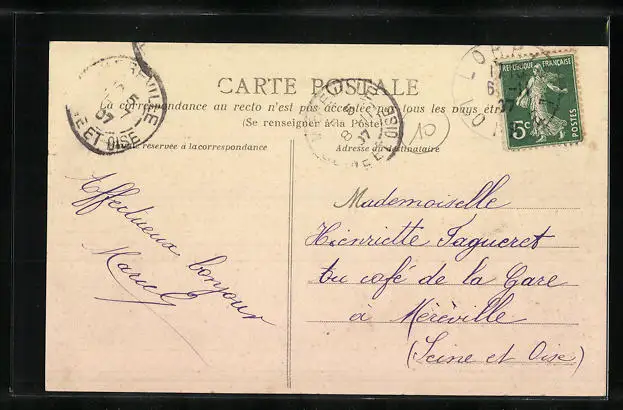 CARTE POSTALE
La correspondance au recto n'est pas acceptée par tous les pays étr
(Se renseigner à la Poste)
réservée à la correspondance
Adresse du destinataire
REPUBLIQUE FRANÇAISE
5c
POSTES
ET OISE
07
10
Affectueux bonjour
Mademoiselle
Henriette Tagueret
au café de la Gare
à Méréville
(Seine et Oise)